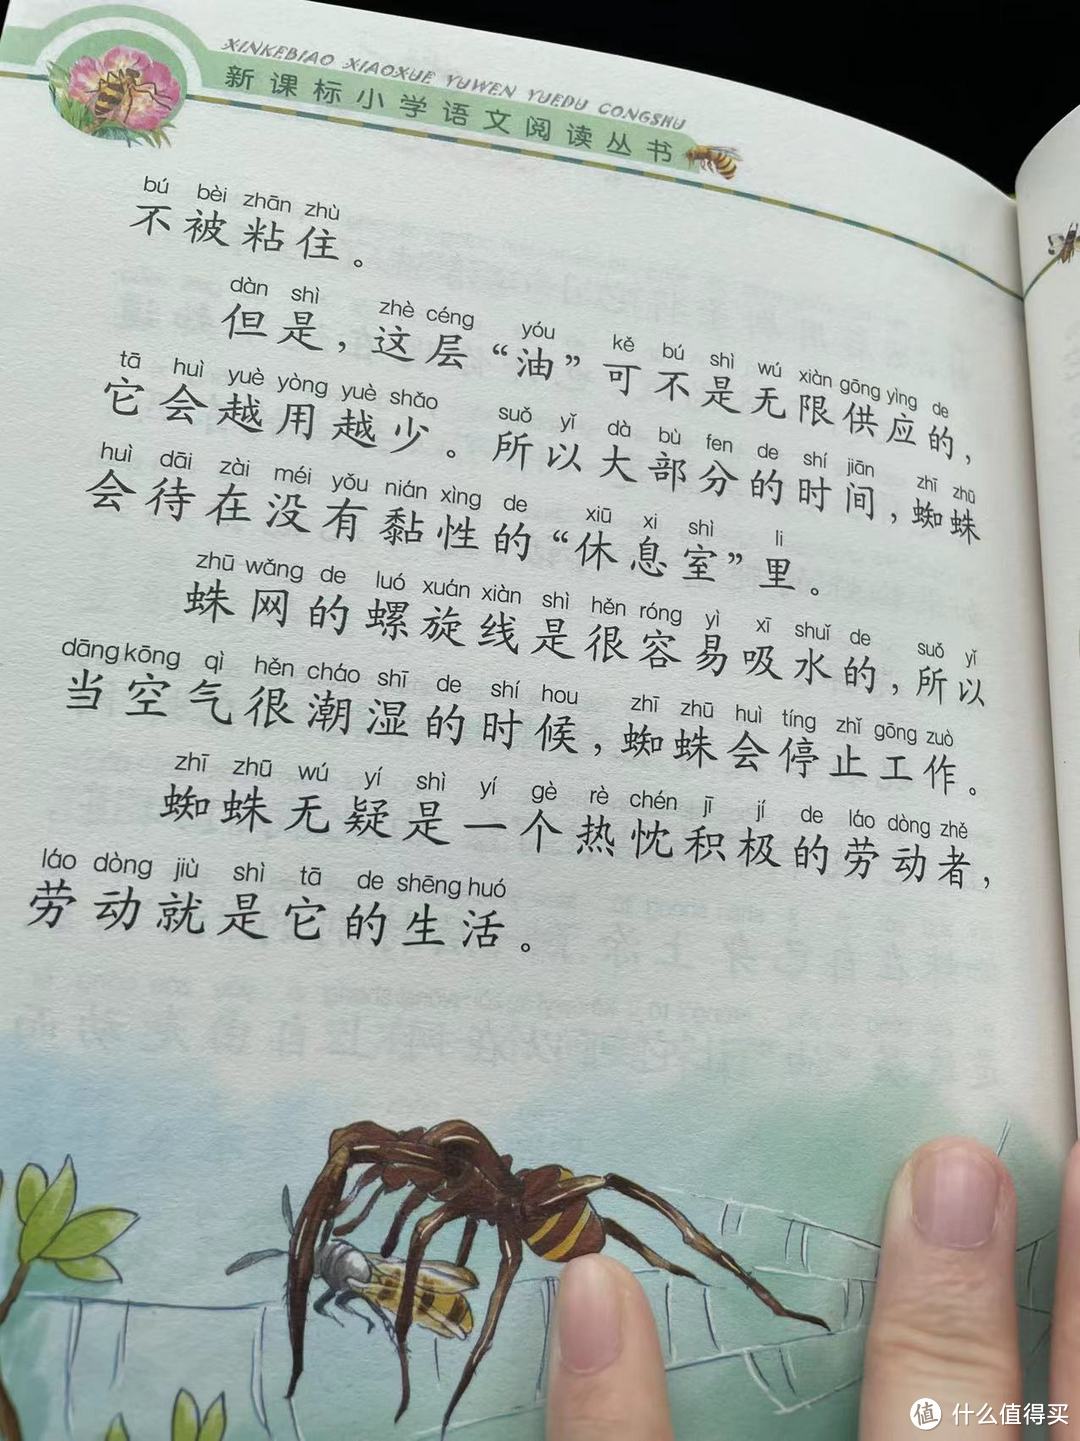 XINKEBIAO XIAOXUE YUWEN YUEDU CONGSHU
新课标小学语文阅读丛书
bú bèi zhān zhù
不被粘住。
dàn shì zhè céng yóu kě bú shì wú xiàn gōng yìng de
但是，这层“油”可不是无限供应的，
tā huì yuè yòng yuè shǎo suǒ yǐ dà bù fen de shí jiān zhī zhū
它会越用越少。所以大部分的时间，蜘蛛
huì dāi zài méi yǒu nián xìng de xiū xi shì li
会待在没有黏性的“休息室”里。
zhū wǎng de luó xuán xiàn shì hěn róng yì xī shuǐ de suǒ yǐ
蛛网的螺旋线是很容易吸水的，所以
dāng kōng qì hěn cháo shī de shí hou zhī zhū huì tíng zhǐ gōng zuò
当空气很潮湿的时候，蜘蛛会停止工作。
zhī zhū wú yí shì yí gè rè chén jī jí de láo dòng zhě
蜘蛛无疑是一个热忱积极的劳动者，
láo dòng jiù shì tā de shēng huó
劳动就是它的生活。
值 什么值得买